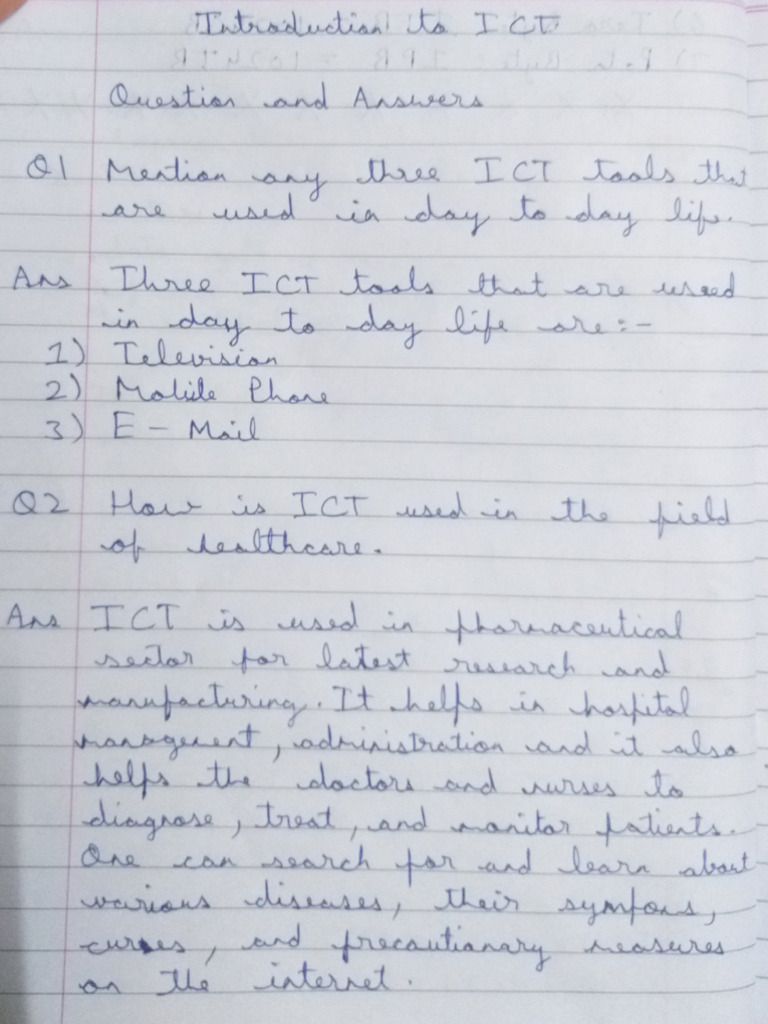 Introduction to ICT
Question and Answers
Q1 Mention any three ICT tools that
are used in day to day life.
Ans Three ICT tools that are used
in day to day life are:-
1) Television
2) Mobile Phone
3) E - Mail
Q2 How is ICT used in the field
of healthcare.
Ans ICT is used in pharmaceutical
sector for latest research and
manufacturing. It helps in hospital
management, administration and it also
helps the doctors and nurses to
diagnose, treat, and monitor patients.
One can search for and learn about
various diseases, their sympons,
cures, and precautionary measures
on the internet.